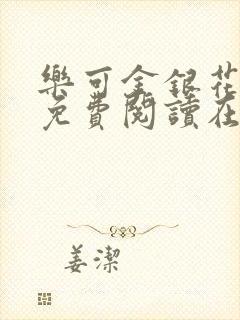 樂可金銀花
免費閱讀在
姜潔